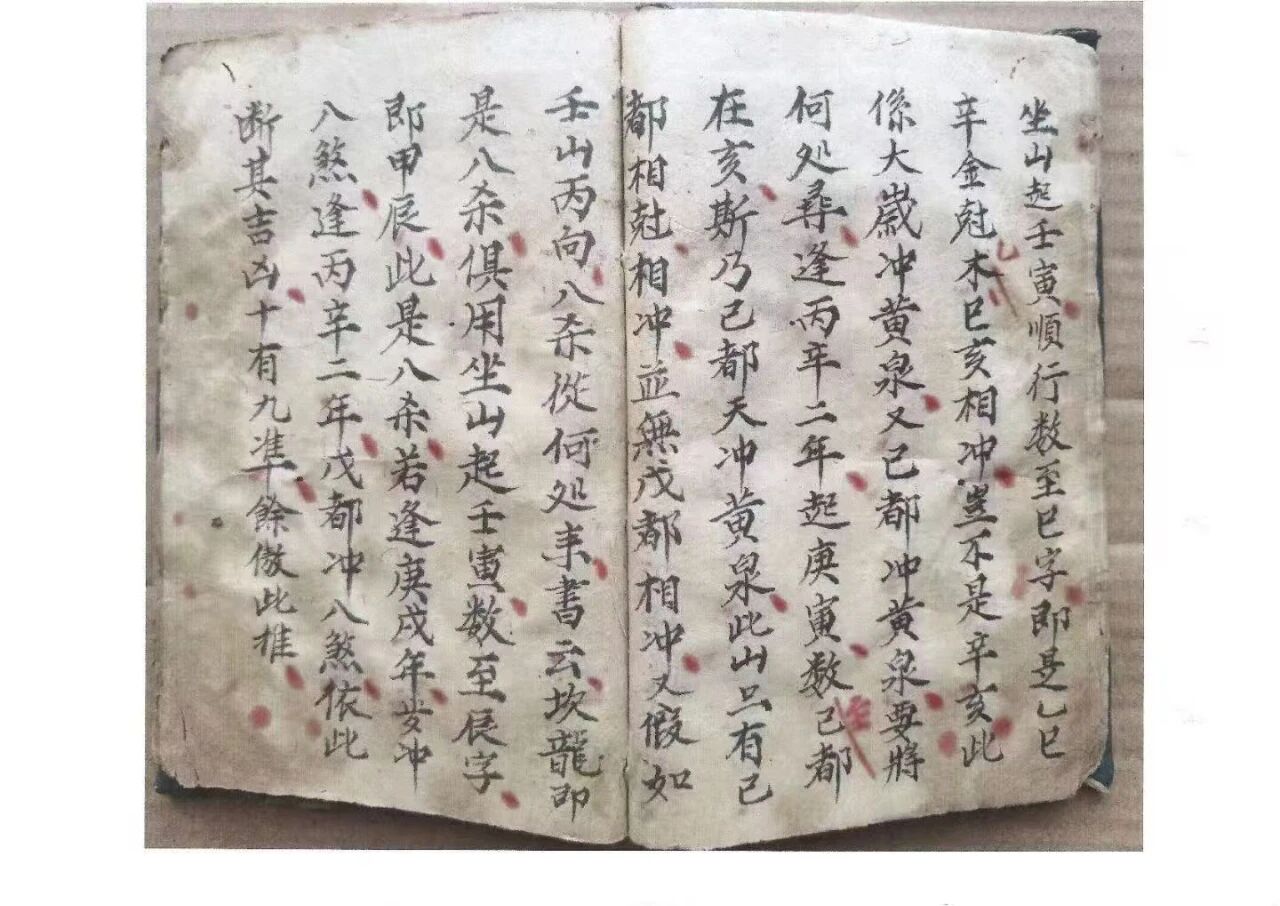 坐山起壬寅順行数至巳字即是乙巳
辛金尅木巳亥相冲豈不是辛亥此
係大歲冲黄泉又己都冲黄泉要將
何处尋逢丙辛二年起庚寅数至己都
在亥斯乃己都天冲黄泉此山只有己
都相尅相冲並無戊都相冲又假如
壬山丙向八杀從何处来書云坎龍即
是八杀俱用坐山起壬寅数至辰字
即甲辰此是八杀若逢庚戌年岁冲
八煞逢丙辛二年戊都冲八煞依此
断其吉凶十有九準餘倣此推